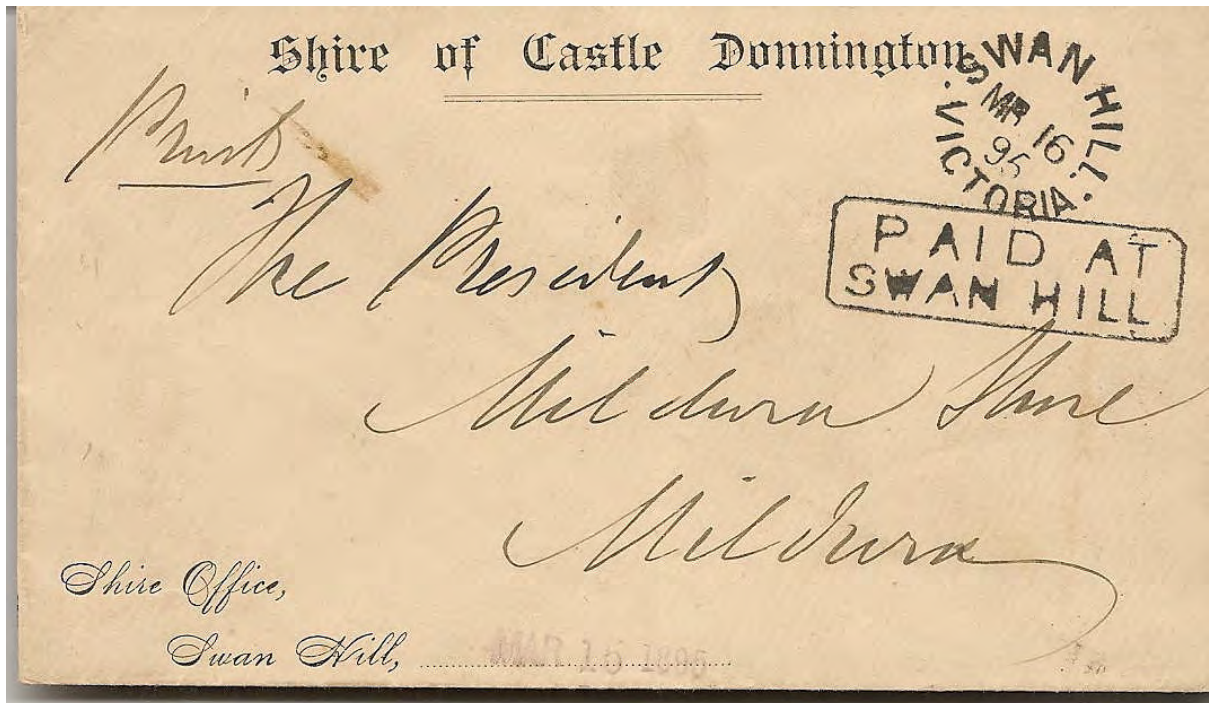 Shire of Castle Donnington
SWAN HILL
MR 16
95
VICTORIA
PAID AT
SWAN HILL
The President
Mildura Shire
Mildura
Shire Office,
Swan Hill,